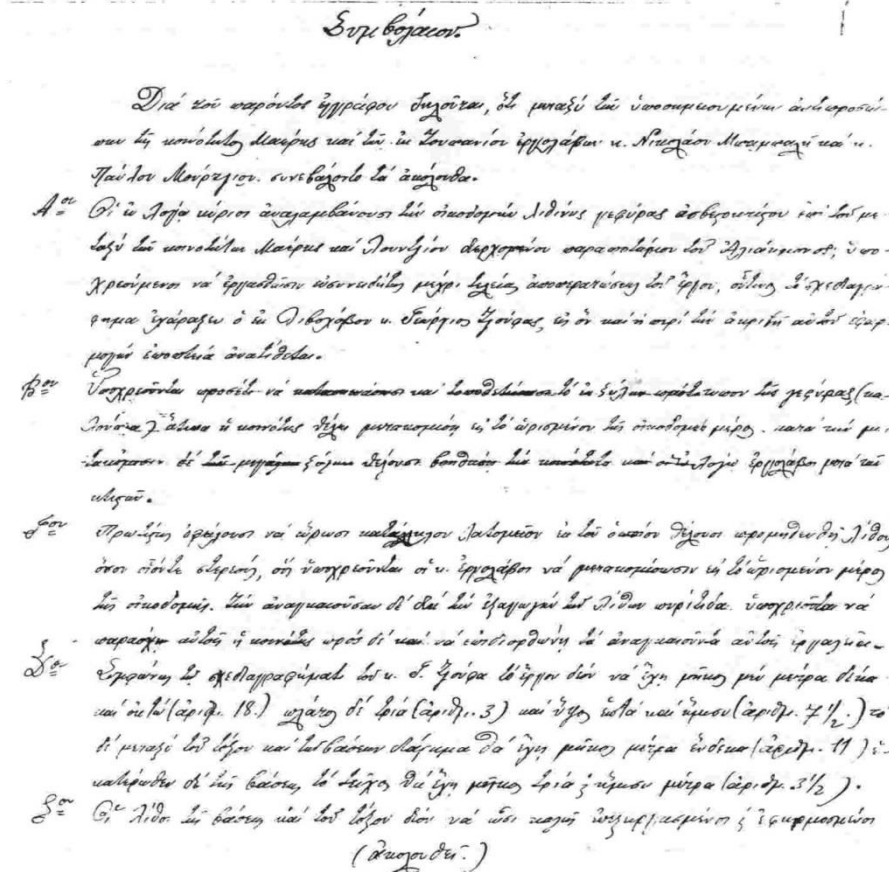 Συμβόλαιον.
Διά τοῦ παρόντος ἐγγράφου δηλοῦται, ὅτι μεταξύ τῶν ὑποσημειουμένων ἀντιπροσώ-
πων τῆς κοινότητος Μαέρης καί τῶν ἐκ Ζουπανίου ἐργολάβων κ. Νικολάου Μπαμπαλῆ καί κ.
Παύλου συνεβλήθη τά ἀκόλουθα.
Αον Οἱ ἐν λόγῳ κύριοι ἀναλαμβάνουσι τήν οἰκοδομήν λιθίνης γεφύρας ἀσβεστοκτίστου ἐπί τοῦ με-
ταξύ τῶν κοινοτήτων Μαέρης καί διερχομένου παραποτάμου τοῦ Ἀλιάκμονος, ὑπο-
χρεούμενοι νά ἐργασθῶσιν εὐσυνειδήτως μέχρι τελείας ἀποπερατώσεως τοῦ ἔργου, οὗτινος τό σχεδιαγρά-
φημα ἐχάραξεν ὁ ἐκ κ. Γεώργιος Ζούφας, εἰς ὅν καί ἡ περί τήν ἀκριβῆ αὐτοῦ ἐφαρ-
μογήν ἐποπτεία ἀνατίθεται.
Βον Ὑποχρεοῦνται προσέτι νά κατασκευάσωσι καί τοποθετήσωσι τό ἐκ ξύλων πρότυπον τῆς γεφύρας (κα-
λούπια) ἅτινα ἡ κοινότης θέλει μετακομίσῃ εἰς τό ὡρισμένον τῆς οἰκοδομῆς μέρος. κατά τήν με-
τακόμισιν δέ τῶν μεγάλων ξύλων θέλουσι βοηθήσῃ τήν κοινότητα καί οἱ ἐν λόγῳ ἐργολάβοι μετά τῶν
κτιστῶν.
Γον Πρωτίστως ὀφείλουσι νά εὕρωσι κατάλληλον λατομεῖον ἐκ τοῦ ὁποίου θέλουσι προμηθευθῆ λίθους
ὅσον οἷόν τε στερεούς, οὕς ὑποχρεοῦνται οἱ κ. ἐργολάβοι νά μετακομίσωσιν εἰς τό ὡρισμένον μέρος
τῆς οἰκοδομῆς. Τήν ἀναγκαιοῦσαν δέ διά τήν ἐξαγωγήν τῶν λίθων πυρίτιδα ὑποχρεοῦται νά
παράσχῃ αὐτοῖς ἡ κοινότης πρός δέ καί νά ἐπιδιορθώνῃ τά ἀναγκαιοῦντα αὐτοῖς ἐργαλεῖα.
Δον Συμφώνως τῷ σχεδιαγραφήματι τοῦ κ. Γ. Ζούφα τό ἔργον δέον νά ἔχῃ μῆκος μέν μέτρα δέκα
καί ὀκτώ (ἀριθμ. 18.) πλάτος δέ τρία (ἀριθμ. 3) καί ὕψος ἑπτά καί ἥμισυ (ἀριθμ. 7 1/2.) τό
δέ μεταξύ τοῦ τόξου καί τῶν βάσεων διάστημα θά ἔχῃ μῆκος μέτρα ἕνδεκα (ἀριθμ. 11) ἑ-
κατέρωθεν δέ τῆς βάσεως τό τεῖχος θά ἔχῃ μῆκος τρία ϗ ἥμισυ μέτρα (ἀριθμ. 3 1/2).
Εον Οἱ λίθοι τῆς βάσεως καί τοῦ τόξου δέον νά ὦσι καλῶς ἐπεξειργασμένοι ϗ ἐφηρμοσμένοι
(ἀκολουθεῖ.)